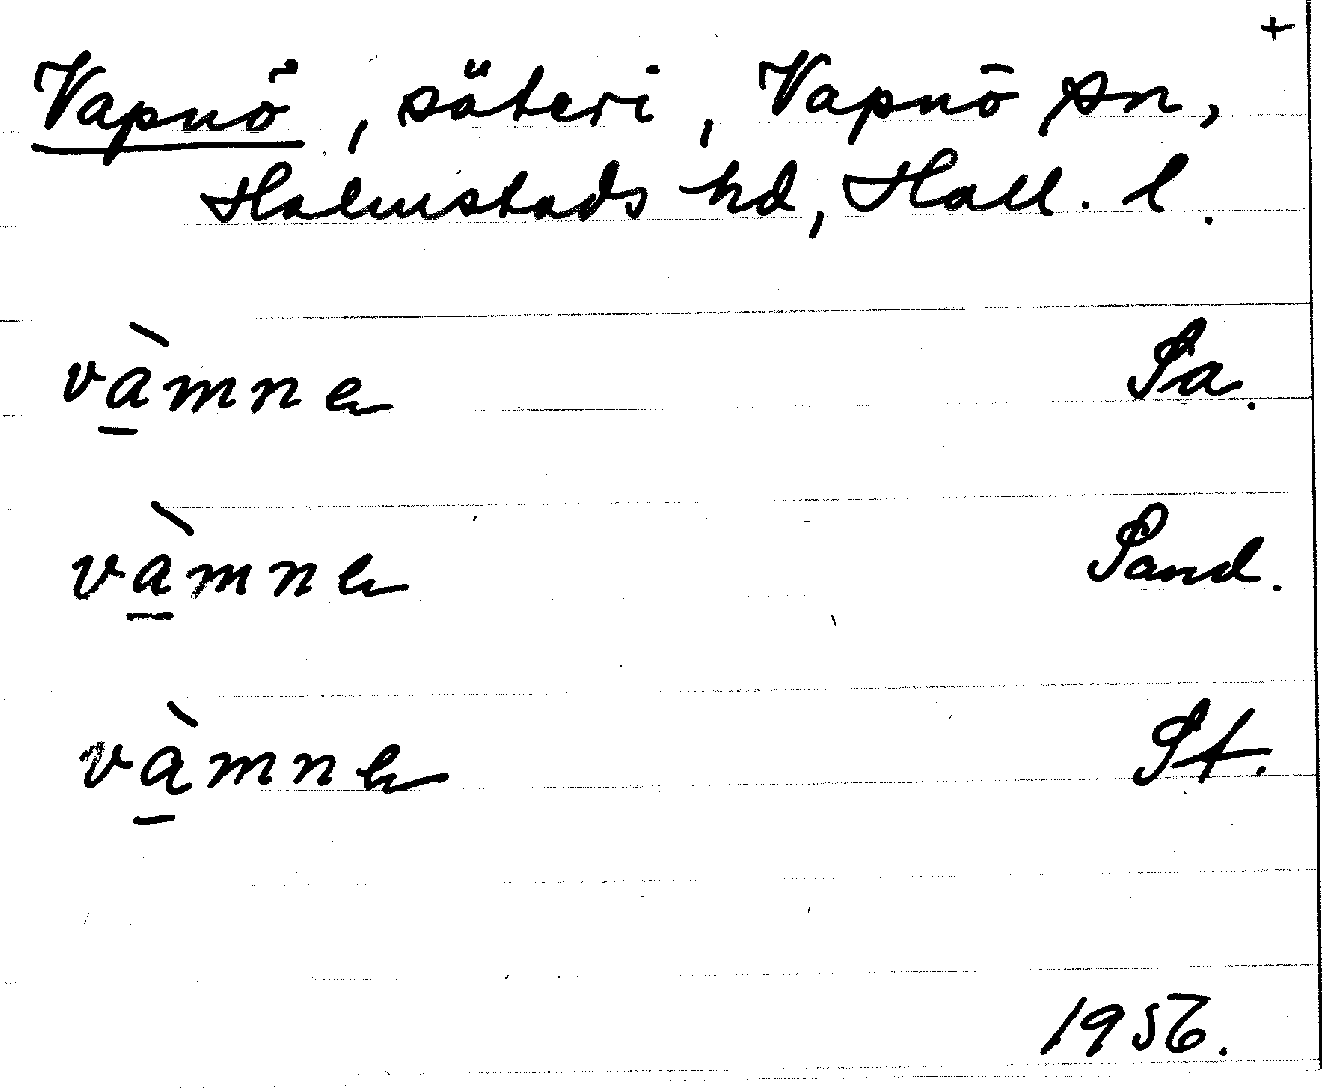 +
Vapnö, säteri, Vapnö sn,
Halmstads hd, Hall. l.
và̱mne Sa.
và̱mne Sand.
và̱mne St.
1956.